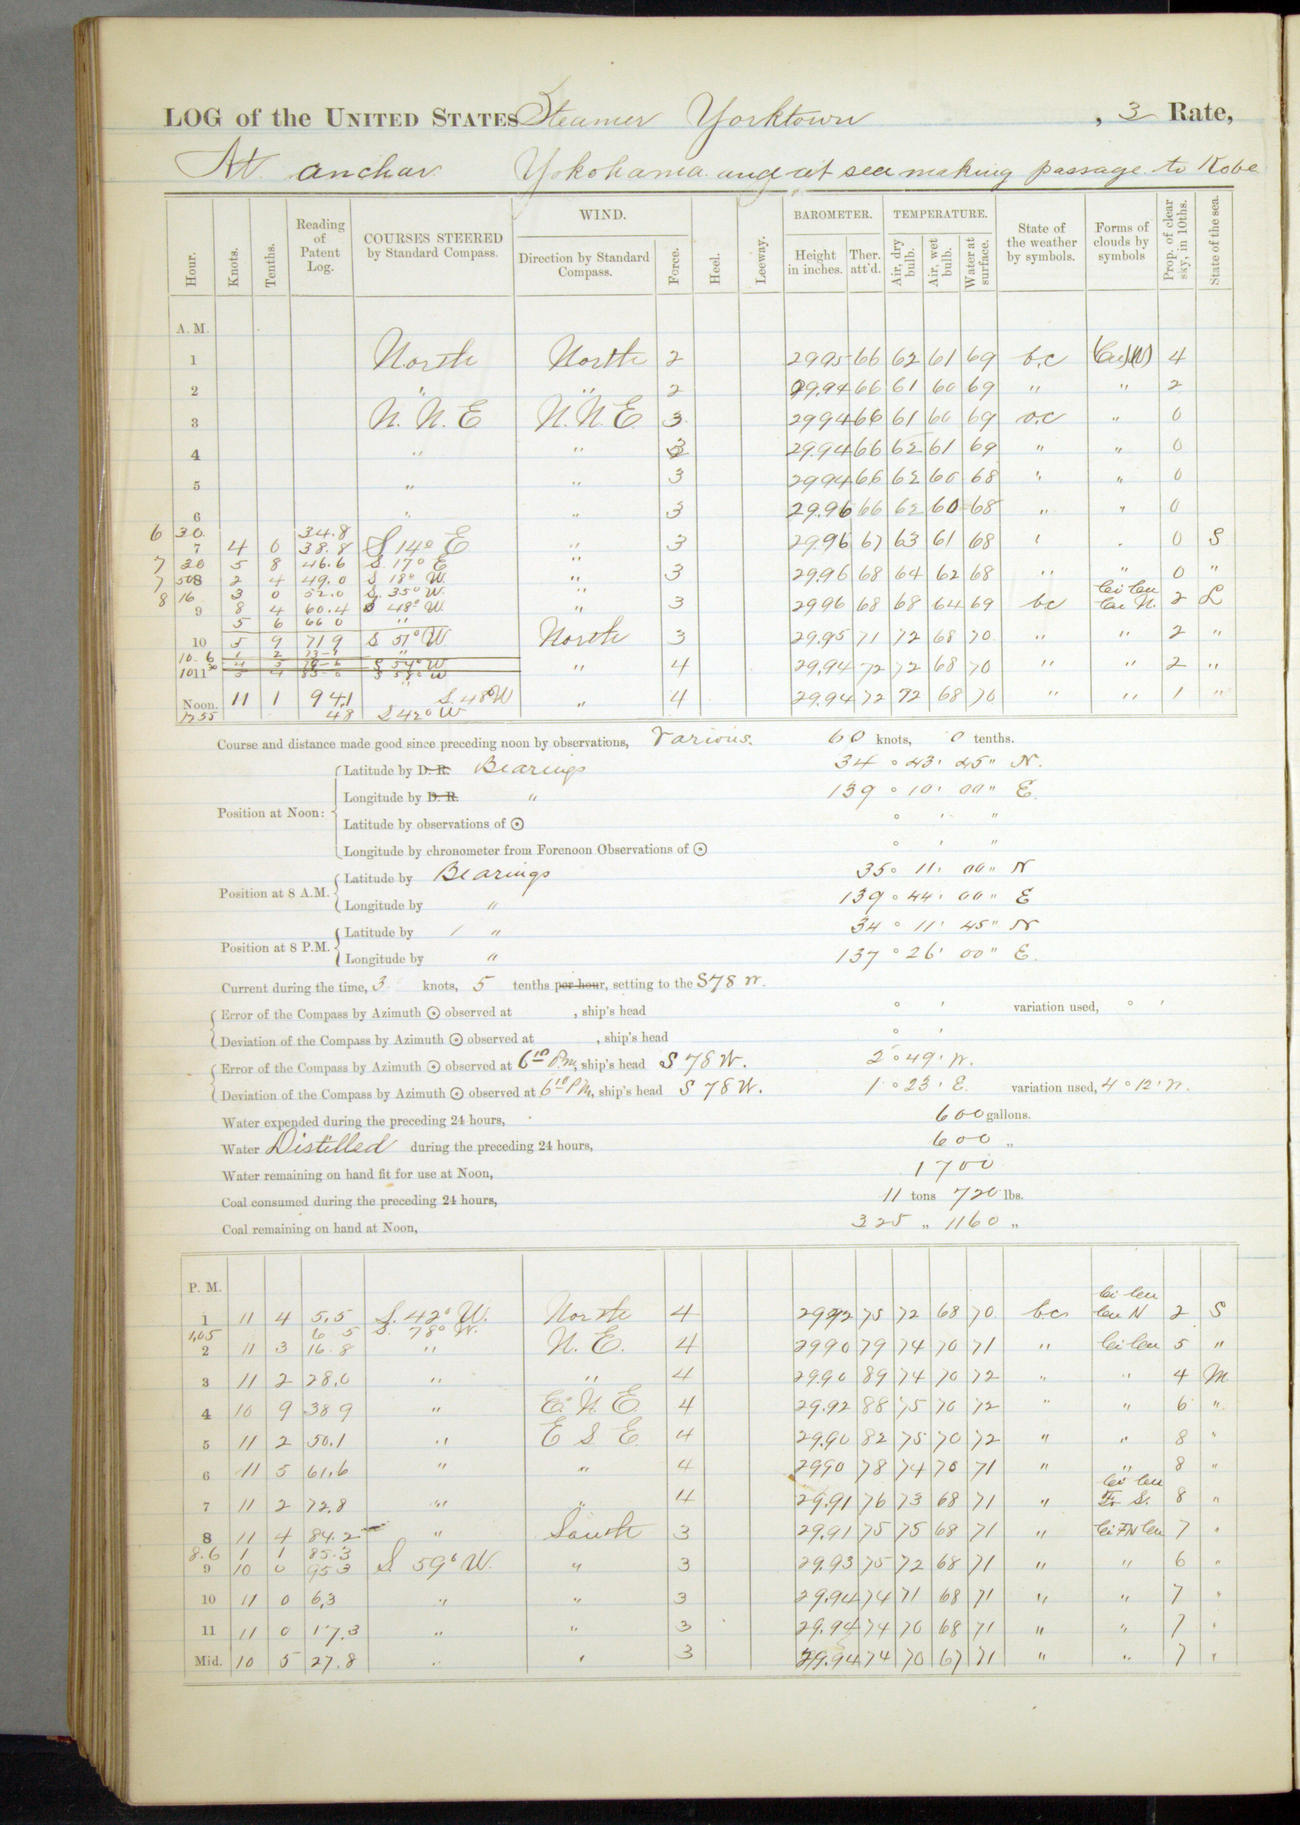 LOG of the UNITED STATES Steamer Yorktown, 3 Rate,
At anchor Yokohama and at sea making passage to Kobe
Hour. Knots. Tenths. Reading of Patent Log. COURSES STEERED by Standard Compass. WIND. Direction by Standard Compass. Force. Heel. Leeway. BAROMETER. Height in inches. Ther. att'd. TEMPERATURE. Air, dry bulb. Air, wet bulb. Water at surface. State of the weather by symbols. Forms of clouds by symbols Prop. of clear sky, in 10ths. State of the sea.
A. M.
1 North North 2 29.95 66 62 61 69 b.c 4
2 " " 2 29.94 66 61 60 69 " " 2
3 N. N. E N. N. E 3 29.94 66 61 60 69 o.c " 0
4 " " 3 29.94 66 62 61 69 " " 0
5 " " 3 29.94 66 62 60 68 " " 0
6 " " 3 29.96 66 62 60 68 " " 0
6 30 34.8
7 4 0 38.8 S 14° E " 3 29.96 67 63 61 68 ' . 0 S
7 30 5 8 46.6 S. 17° E "
7 50 8 2 4 49.0 S 18° W. " 3 29.96 68 64 62 68 " " 0 "
8 16 3 0 52.0 S. 35° W. "
9 8 4 60.4 S 48° W " 3 29.96 68 68 64 69 bc Ci Cu Cu N. 2 L
5 6 66 0 "
10 5 9 71 9 S 51° W North 3 29.95 71 72 68 70 " " 2 "
10. 6 1 2 73-1 "
11 S 54° W " 4 29.94 72 72 68 70 " " 2 "
Noon. 11 1 94.1 S. 48° W " 4 29.94 72 72 68 70 " " 1 "
12 55 48 S 42° W
Course and distance made good since preceding noon by observations, Various. 60 knots, 0 tenths.
Position at Noon: Latitude by D. R. Bearings 34 ° 43 ' 45 " N.
Longitude by D. R. " 139 ° 10 ' 00 " E
Latitude by observations of ☉ ° ' "
Longitude by chronometer from Forenoon Observations of ☉ ° ' "
Position at 8 A.M. Latitude by Bearings 35 ° 11 ' 00 " N
Longitude by " 139 ° 44 ' 00 " E
Position at 8 P.M. Latitude by " 34 ° 11 ' 45 " N
Longitude by " 137 ° 26 ' 00 " E.
Current during the time, 3 knots, 5 tenths per hour, setting to the S 78 W.
Error of the Compass by Azimuth ☉ observed at , ship's head ° ' variation used, ° '
Deviation of the Compass by Azimuth ☉ observed at , ship's head ° '
Error of the Compass by Azimuth ☉ observed at 6 10 P.m, ship's head S 78 W. 2 ° 49 ' W.
Deviation of the Compass by Azimuth ☉ observed at 6 10 P M, ship's head S 78 W. 1 ° 23 ' E. variation used, 4 ° 12 ' W.
Water expended during the preceding 24 hours, 600 gallons.
Water Distilled during the preceding 24 hours, 600 "
Water remaining on hand fit for use at Noon, 1700
Coal consumed during the preceding 24 hours, 11 tons 720 lbs.
Coal remaining on hand at Noon, 325 " 1160 "
P. M.
1 11 4 5.5 S. 42° W. North 4 29.92 75 72 68 70 bc Ci Cu Cu N 2 S
1.05 6 5 S. 78° W.
2 11 3 16.8 " N. E. 4 29.90 79 74 70 71 " Ci Cu 5 "
3 11 2 28.0 " " 4 29.90 89 74 70 72 " " 4 M
4 10 9 38 9 " E. N. E. 4 29.92 88 75 70 72 " " 6 "
5 11 2 50.1 " E S E 4 29.90 82 75 70 72 " " 8 "
6 11 5 61.6 " " 4 29.90 78 74 70 71 " " 8 "
7 11 2 72.8 " " 4 29.91 76 73 68 71 " Ci Cu S. 8 "
8 11 4 84.2 " South 3 29.91 75 75 68 71 " 7 "
8.6 1 1 85.3
9 10 0 95 3 S. 59° W. " 3 29.93 75 72 68 71 " " 6 "
10 11 0 6.3 " " 3 29.94 74 71 68 71 " " 7 "
11 11 0 17.3 " " 3 29.94 74 70 68 71 " " 7 "
Mid. 10 5 27.8 " " 3 29.94 74 70 67 71 " " 7 "